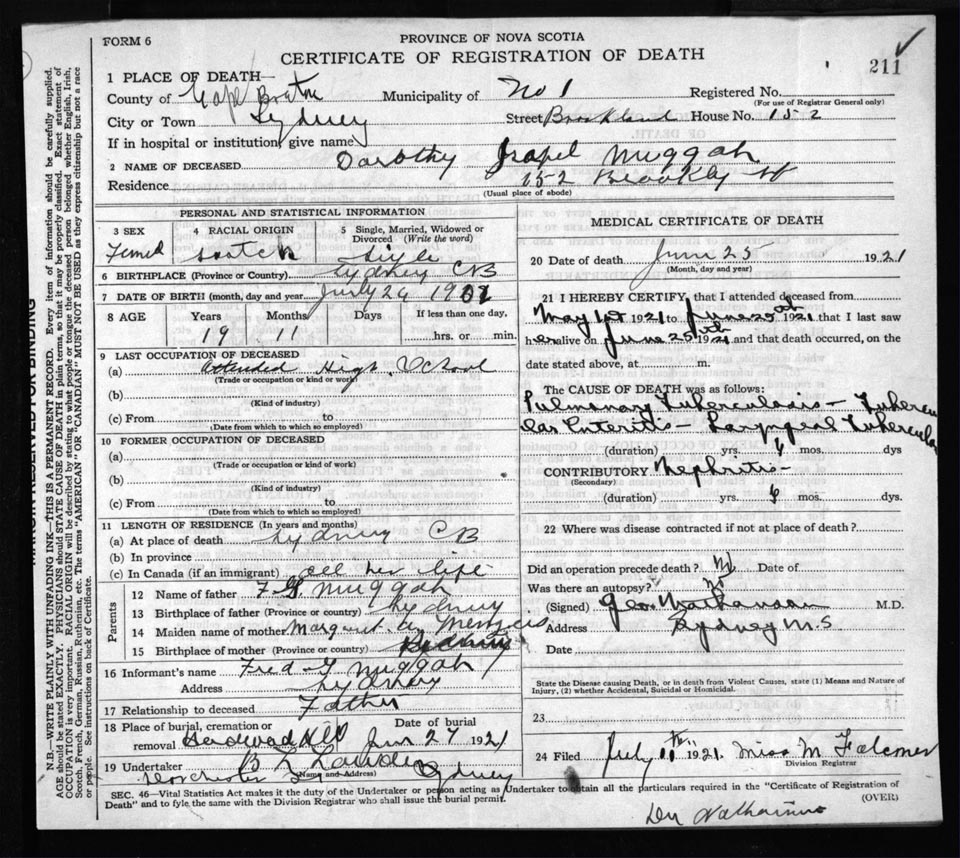 FORM 6
PROVINCE OF NOVA SCOTIA
CERTIFICATE OF REGISTRATION OF DEATH
211
1 PLACE OF DEATH—
County of Cape Breton Municipality of No 1 Registered No.
(For use of Registrar General only)
City or Town Sydney Street Brookland House No. 152
If in hospital or institution, give name
2 NAME OF DECEASED Dorothy Isabel Muggah
Residence 152 St
(Usual place of abode)
PERSONAL AND STATISTICAL INFORMATION
3 SEX 4 RACIAL ORIGIN 5 Single, Married, Widowed or Divorced (Write the word)
Scotch
6 BIRTHPLACE (Province or Country) Sydney CB
7 DATE OF BIRTH (month, day and year) July 1901
8 AGE Years Months Days If less than one day,
19 11 hrs. or min.
9 LAST OCCUPATION OF DECEASED
(a) attended High School
(Trade or occupation or kind or work)
(b)
(Kind of industry)
(c) From to
(Date from which to which so employed)
10 FORMER OCCUPATION OF DECEASED
(a)
(Trade or occupation or kind of work)
(b)
(Kind of industry)
(c) From to
(Date from which to which so employed)
11 LENGTH OF RESIDENCE (In years and months)
(a) At place of death Sydney CB
(b) In province
(c) In Canada (if an immigrant) all her life
Parents
12 Name of father F G Muggah
13 Birthplace of father (Province or country) Sydney
14 Maiden name of mother Margaret A
15 Birthplace of mother (Province or country)
16 Informant's name Fred G Muggah
Address Sydney
17 Relationship to deceased Father
18 Place of burial, cremation or removal Hardwood Hill Date of burial Jun 27 1921
19 Undertaker
(Name and Address)
Dorchester St Sydney
MEDICAL CERTIFICATE OF DEATH
20 Date of death June 25 1921
(Month, day and year)
21 I HEREBY CERTIFY, that I attended deceased from
May 1st 1921 to June 25th 1921 that I last saw
her alive on June 25th 1921 and that death occurred, on the
date stated above, at m.
The CAUSE OF DEATH was as follows:
Pulmonary Tuberculosis — Tubercu
lar Enteritis — Laryngeal Tubercular
(duration) yrs. 6 mos. dys
CONTRIBUTORY Nephritis —
(Secondary)
(duration) yrs. 6 mos. dys.
22 Where was disease contracted if not at place of death?
Did an operation precede death? No Date of
Was there an autopsy? No
(Signed) Geo. M.D.
Address Sydney N.S.
Date
State the Disease causing Death, or in death from Violent Causes, state (1) Means and Nature of
Injury, (2) whether Accidental, Suicidal or Homicidal.
23
24 Filed July 11th 1921. Miss M Falconer
Division Registrar
SEC. 46—Vital Statistics Act makes it the duty of the Undertaker or person acting as Undertaker to obtain all the particulars required in the "Certificate of Registration of
Death" and to fyle the same with the Division Registrar who shall issue the burial permit.
(OVER)
MARGIN RESERVED FOR BINDING
N.B.—WRITE PLAINLY WITH UNFADING INK—THIS IS A PERMANENT RECORD. Every item of information should be carefully supplied.
AGE should be stated EXACTLY. PHYSICIANS should STATE CAUSE OF DEATH in plain terms, so that it may be properly classified. Exact statement of
OCCUPATION is very important. RACIAL ORIGIN will be described by stating to what people or tongue the deceased person belonged whether English, Irish,
Scotch, French, German, Russian, Ruthenian, etc. The terms "AMERICAN" OR "CANADIAN" MUST NOT BE USED as they express citizenship but not a race
or people. See instructions on back of Certificate.